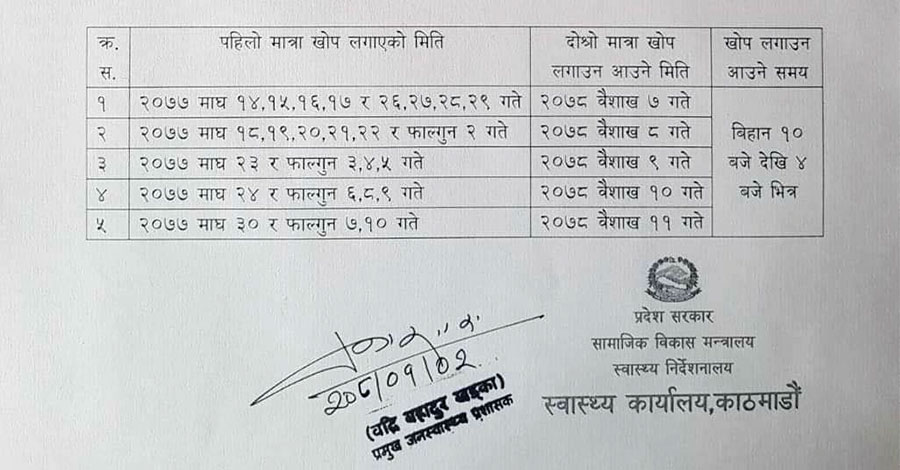 क्र. स. पहिलो मात्रा खोप लगाएको मिति दोश्रो मात्रा खोप लगाउन आउने मिति खोप लगाउन आउने समय
१ २०७७ माघ १४,१५,१६,१७ र २६,२७,२८,२९ गते २०७८ वैशाख ७ गते
२ २०७७ माघ १८,१९,२०,२१,२२ र फाल्गुन २ गते २०७८ वैशाख ८ गते
३ २०७७ माघ २३ र फाल्गुन ३,४,५ गते २०७८ वैशाख ९ गते
४ २०७७ माघ २४ र फाल्गुन ६,८,९ गते २०७८ वैशाख १० गते
५ २०७७ माघ ३० र फाल्गुन ७,१० गते २०७८ वैशाख ११ गते
बिहान १०
बजे देखि ४
बजे भित्र
प्रदेश सरकार
सामाजिक विकास मन्त्रालय
स्वास्थ्य निर्देशनालय
स्वास्थ्य कार्यालय,काठमाडौं
(वद्रि बहादुर खड्का)
प्रमुख जनस्वास्थ्य प्रशासक